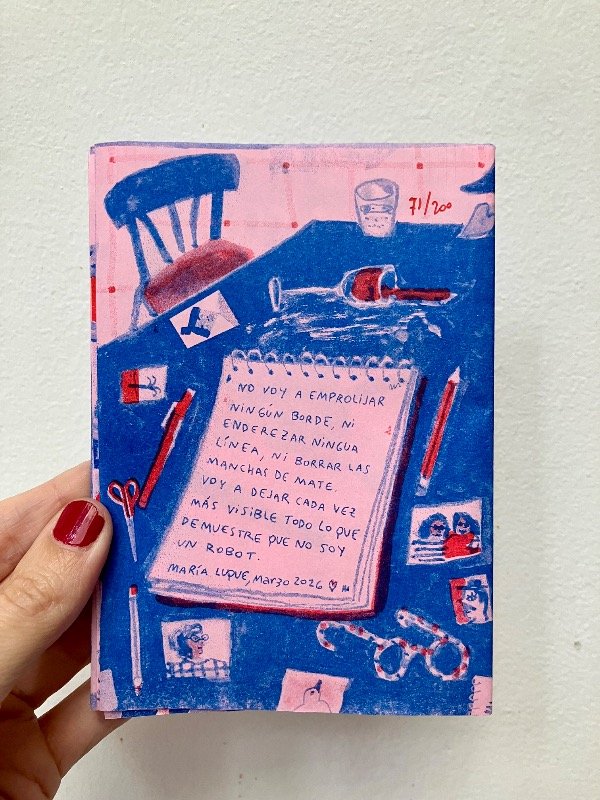 71/200
NO VOY A EMPROLIJAR
NINGÚN BORDE, NI
ENDEREZAR NINGUA
LÍNEA, NI BORRAR LAS
MANCHAS DE MATE.
VOY A DEJAR CADA VEZ
MÁS VISIBLE TODO LO QUE
DEMUESTRE QUE NO SOY
UN ROBOT.
MARÍA LUQUE, marzo 2026